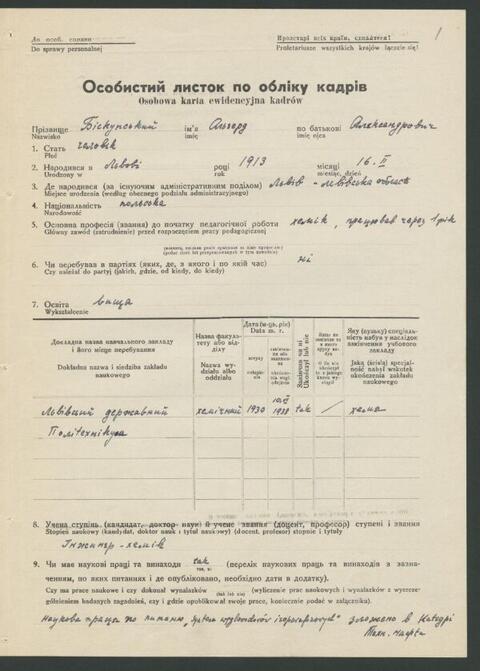 До особ. справи
Do sprawy personalnej
Пролетарі всіх країн, єднайтеся!
Proletariusze wszystkich krajów łączcie się!
1
Особистий листок по обліку кадрів
Osobowa karta ewidencyjna kadrów
Прізвище Біскупський ім'я Альгерд по батькові Александрович
Nazwisko imię imię ojca
1. Стать чоловік
Płeć
2. Народився в Львові році 1913 місяці 16.II
Urodzony w rok miesiąc, dzień
3. Де народився (за існуючим адміністративним поділом) Львів - львівська область
Miejsce urodzenia (według obecnego podziału administracyjnego)
4. Національність польська
Narodowość
5. Основна професія (звання) до початку педагогічної роботи хемік, працював через 1 рік
Główny zawód (zatrudnienie) przed rozpoczęciem pracy pedagogicznej
6. Чи перебував в партіях (яких, де, з якого і по який час) ні
Czy należał do partyj (jakich, gdzie, od kiedy, do kiedy)
7. Освіта вища
Wykształcenie
Докладна назва навчального закладу і його місце перебування
Dokładna nazwa i siedziba zakładu naukowego
Назва факультету або відділу
Nazwa wydziału albo oddziału
Дата (м-ць, рік)
Data m. r.
вступу
Закінчив чи ні
Ukończył lub nie
Яку (вузьку) спеціальність набув у наслідок закінчення учбового закладу
Jaką (ścisłą) specjalność nabył wskutek ukończenia zakładu naukowego
Львівський державний хемічний 1930 10.VI 1938 tak / хемія
Політехнікум
8. Учена ступінь (кандидат, доктор наук) й учене звання (доцент, професор) ступені і звання
Stopień naukowy (kandydat, doktor nauk i tytuł naukowy) (docent, profesor) stopnie i tytuły
Інженір-хемік
9. Чи має наукові праці та винаходи tak (перелік наукових праць та винаходів з зазначенням, по яких питаннях і де опубліковано, необхідно дати в додатку).
так, ні
Czy ma prace naukowe i czy dokonał wynalazków (wyliczenie prac naukowych i wynalazków z wyszczególnieniem badanych zagadnień, czy i gdzie opublikował swoje prace, koniecznie podać w załączniku).
(tak lub nie)
наукова праця по питанню „ węglowodorów " зложено в Катедрі
Техн. нафти